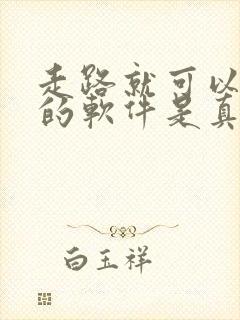 走路就可以
的軟件是真
白玉祥